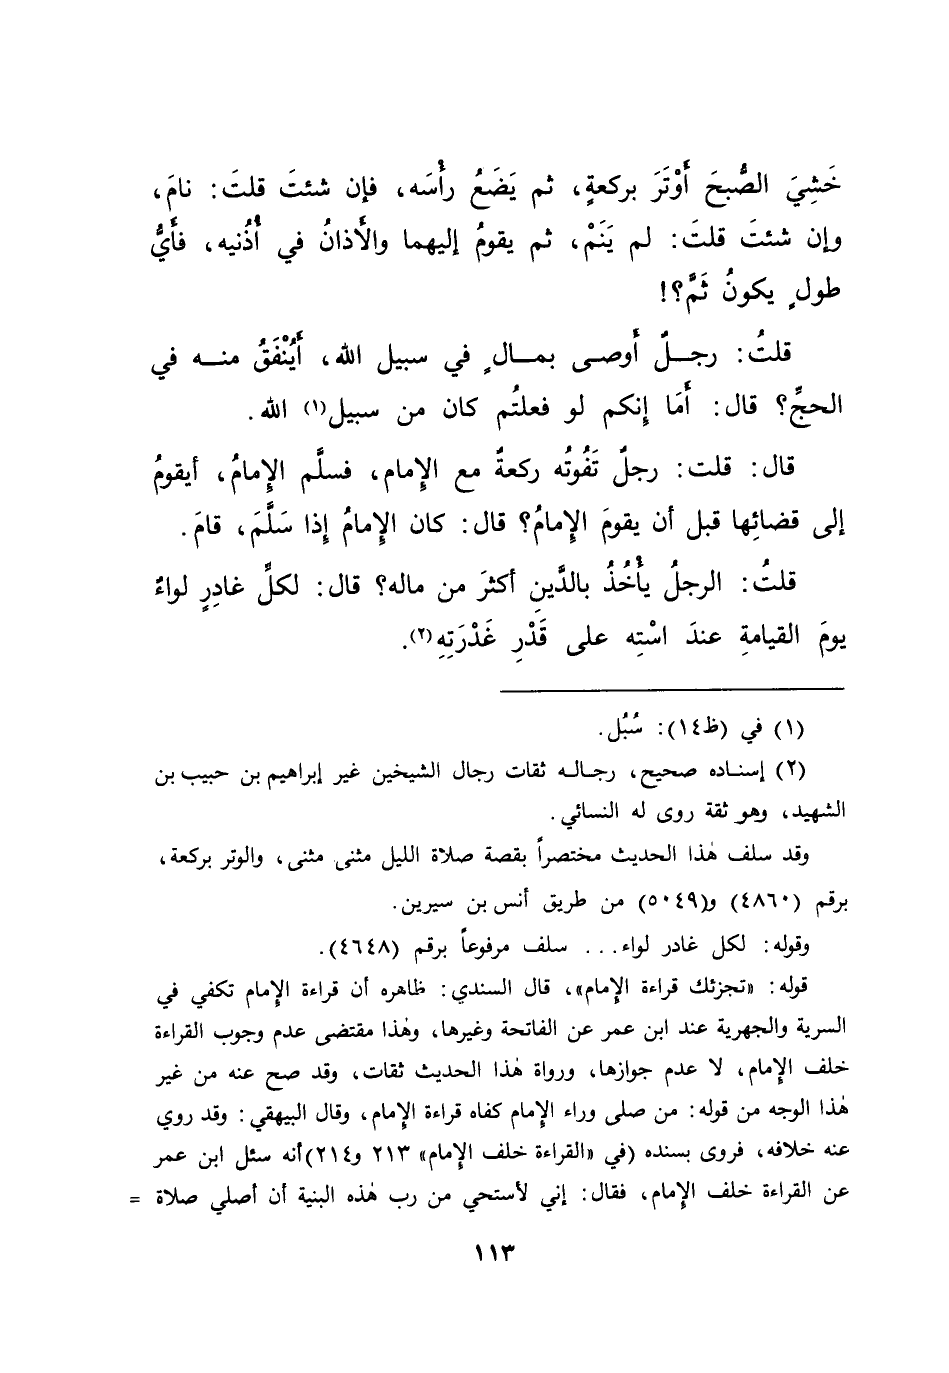 خَشِيَ الصُّبحَ أَوْتَرَ بركعةٍ، ثم يَضَعُ رأْسَه، فإن شئتَ قلتَ: نامَ،
وإن شئتَ قلتَ: لم يَنَمْ، ثم يقومُ إليهما والأَذانُ في أُذُنيه، فأَيُّ
طولٍ يكونُ ثَمَّ؟!
قلتُ: رجلٌ أَوصى بمالٍ في سبيل الله، أَيُنْفَقُ منه في
الحجِّ؟ قال: أَمَا إِنكم لو فعلتُم كان من سبيل(١) الله.
قال: قلت: رجلٌ تَفُوتُه ركعةٌ مع الإِمام، فسلَّم الإِمامُ، أيقومُ
إلى قضائِها قبل أن يقومَ الإِمامُ؟ قال: كان الإِمامُ إِذا سَلَّمَ، قامَ.
قلتُ: الرجلُ يأْخُذُ بالدَّينِ أكثرَ من ماله؟ قال: لكلِّ غادِرٍ لواءٌ
يومَ القيامةِ عندَ اسْتِه على قَدْرِ غَدْرَتِهِ(٢).
(١) في (ظ١٤): سُبُل.
(٢) إسناده صحيح، رجاله ثقات رجال الشيخين غير إبراهيم بن حبيب بن
الشهيد، وهو ثقة روى له النسائي.
وقد سلف هٰذا الحديث مختصراً بقصة صلاة الليل مثنى مثنى، والوتر بركعة،
برقم (٤٨٦٠) و(٥٠٤٩) من طريق أنس بن سيرين.
وقوله: لكل غادر لواء... سلف مرفوعاً برقم (٤٦٤٨).
قوله: «تجزئك قراءة الإِمام»، قال السندي: ظاهره أن قراءة الإِمام تكفي في
السرية والجهرية عند ابن عمر عن الفاتحة وغيرها، وهٰذا مقتضى عدم وجوب القراءة
خلف الإِمام، لا عدم جوازها، ورواة هٰذا الحديث ثقات، وقد صح عنه من غير
هٰذا الوجه من قوله: من صلى وراء الإِمام كفاه قراءة الإِمام، وقال البيهقي: وقد روي
عنه خلافه، فروى بسنده (في «القراءة خلف الإِمام» ٢١٣ و٢١٤)أنه سئل ابن عمر
عن القراءة خلف الإِمام، فقال: إني لأستحي من رب هٰذه البنية أن أصلي صلاة =
١١٣